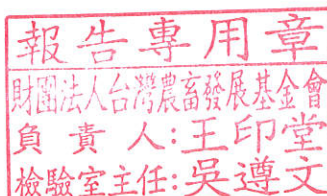 報告專用章
財團法人台灣農畜發展基金會
負責人:王印堂
檢驗室主任:吳遵文